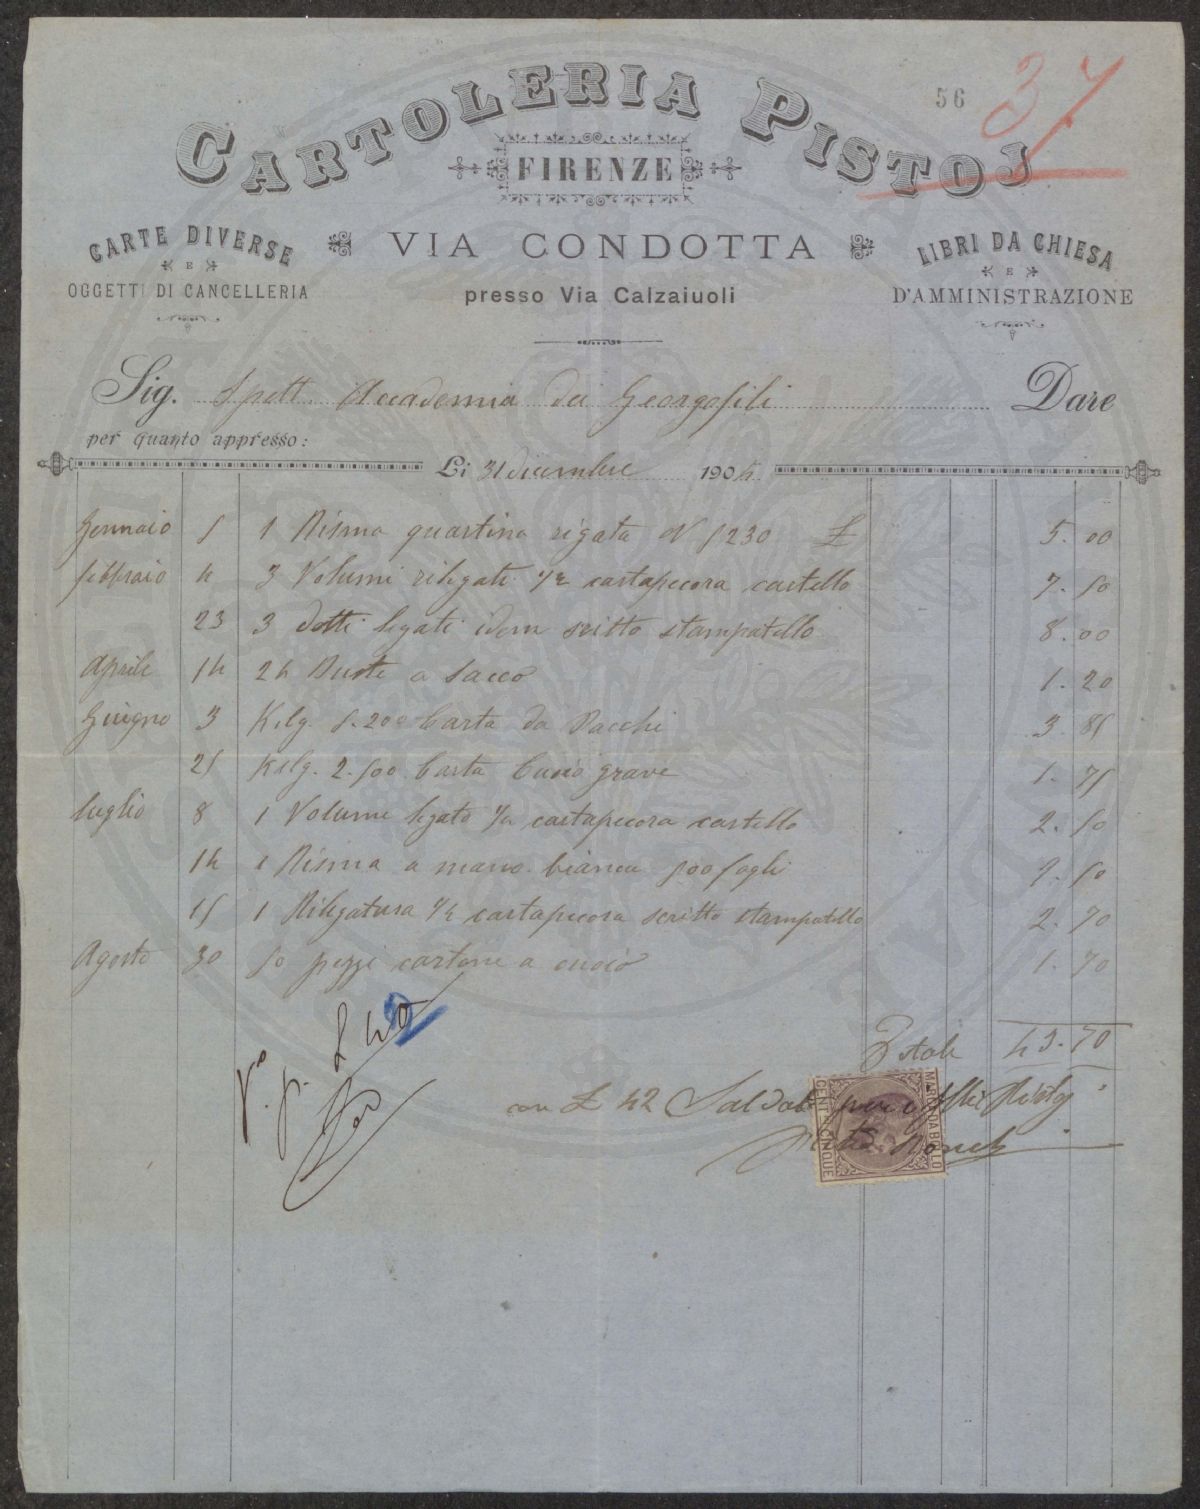 56 37
CARTOLERIA PISTOJ
FIRENZE
CARTE DIVERSE
E
OGGETTI DI CANCELLERIA
VIA CONDOTTA
presso Via Calzaiuoli
LIBRI DA CHIESA
E
D'AMMINISTRAZIONE
Sig. Spett. Accademia dei Georgofili Dare
per quanto appresso:
Li 31 dicembre 1904
Gennaio 5 1 Risma quartina rigata N 5230 £ 5.00
febbraio 4 3 Volumi rilegati 1/2 cartapecora castello 7.50
23 3 detti legati idem scritto stampatello 8.00
Aprile 14 24 Buste a sacco 1.20
Giugno 3 Kilg. 5.200 Carta da Pacchi 3.85
25 Kilg. 2.500 Carta Cuoio grave 1.75
luglio 8 1 Volume legato 1/2 cartapecora castello 2.50
14 1 Risma a mano bianca 500 fogli 9.50
15 1 Rilegatura 1/2 cartapecora scritto stampatello 2.70
Agosto 30 50 pezzi cartone a cuoio 1.70
Totale 43.70
V° p. £ 42
con £ 42 Saldato per
MARCA DA BOLLO
CENT. CINQUE